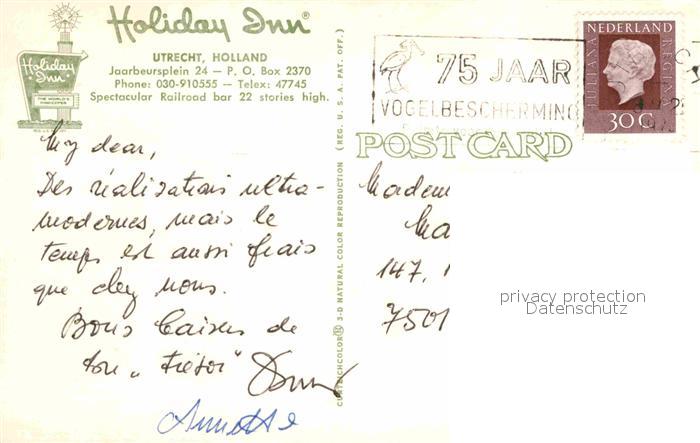 Holiday Inn®
UTRECHT, HOLLAND
Jaarbeursplein 24 — P. O. Box 2370
Phone: 030-910555 — Telex: 47745
Spectacular Railroad bar 22 stories high.
Holiday Inn
THE WORLD'S INNKEEPER
My dear,
Des réalisations ultra-
modernes, mais le
temps est aussi frais
que chez nous.
Bons baisers de
ton „Trésor"
Annette
CURTEICHCOLOR® 3-D NATURAL COLOR REPRODUCTION (REG. U. S. A. PAT. OFF.)
75 JAAR
VOGELBESCHERMING
NEDERLAND
JULIANA REGINA
30C
POST CARD
Madem
Ma
147,
7501
privacy protection
Datenschutz